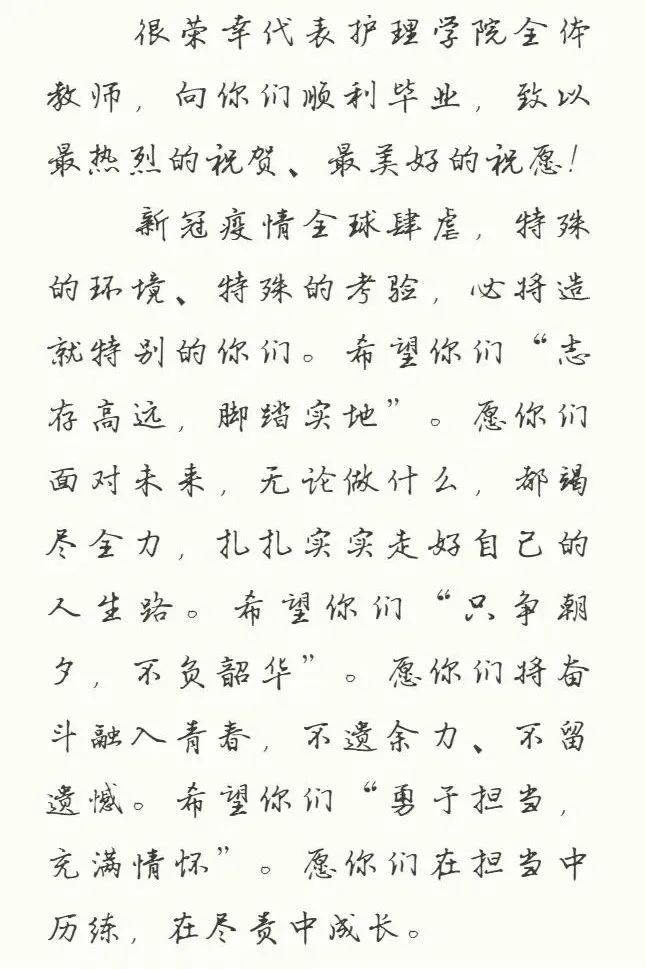 很荣幸代表护理学院全体
教师，向你们顺利毕业，致以
最热烈的祝贺、最美好的祝愿！
新冠疫情全球肆虐，特殊
的环境、特殊的考验，必将造
就特别的你们。希望你们“志
存高远，脚踏实地”。愿你们
面对未来，无论做什么，都竭
尽全力，扎扎实实走好自己的
人生路。希望你们“只争朝
夕，不负韶华”。愿你们将奋
斗融入青春，不遗余力、不留
遗憾。希望你们“勇于担当，
充满情怀”。愿你们在担当中
历练，在尽责中成长。